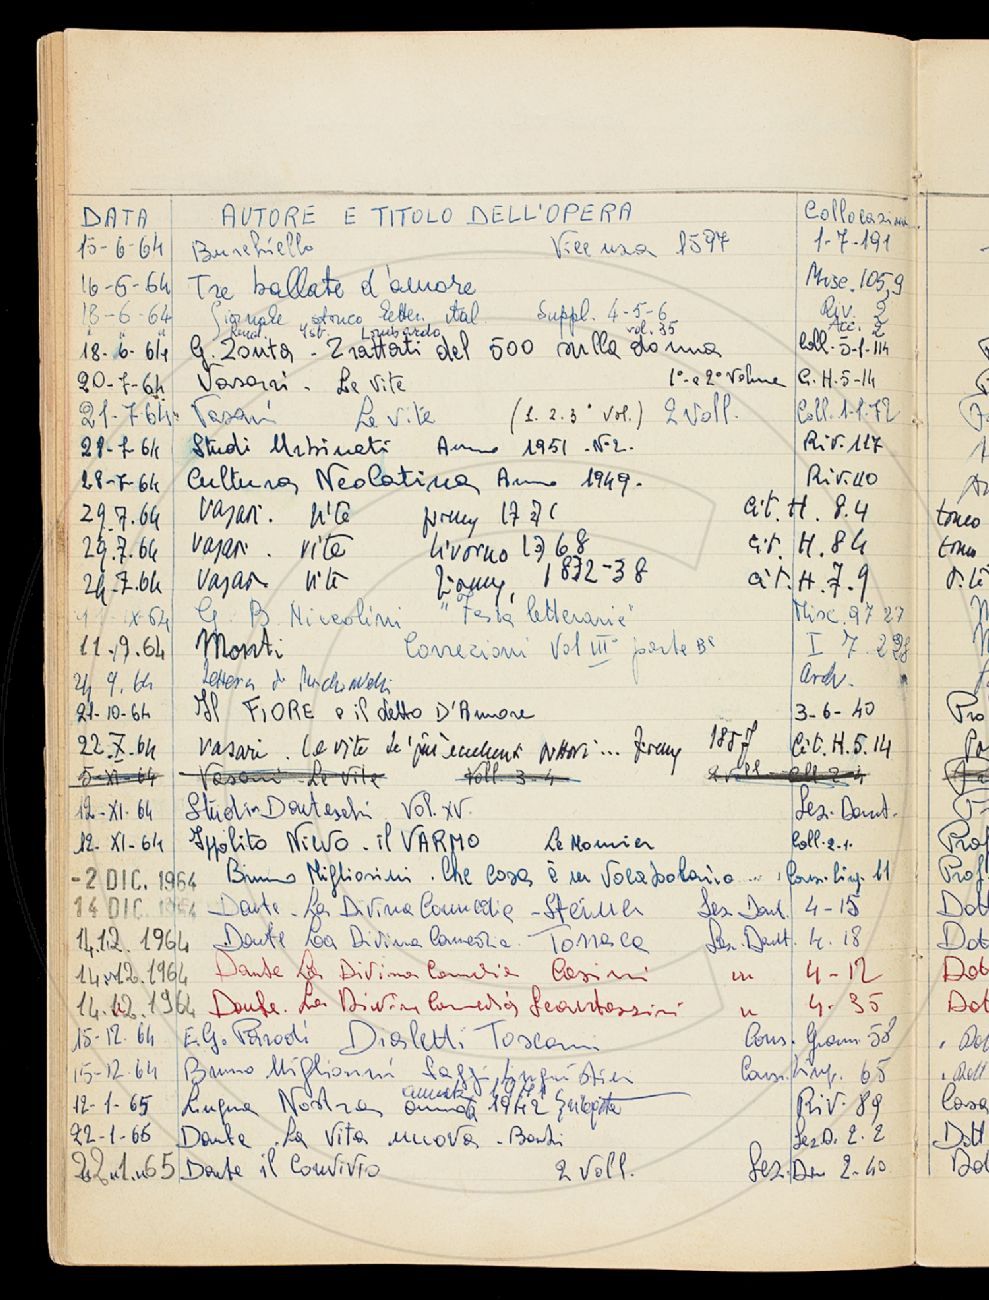 DATA AUTORE E TITOLO DELL'OPERA Collocazione
15-6-64 Burchiello Vicenza 1597 1-7-191
16-6-64 Tre ballate d'amore Misc. 105,9
18-6-64 Giornale storico letter. ital. Suppl. 4-5-6 Riv. 2
" " " Rend. Ist. Lombardo vol. 35 Acc. 2
18-6-64 G. Zonta - Trattati del 500 sulla donna Coll. 5-1-114
20-7-64 Vasari - Le vite 1° e 2° Volume G.H.5-14
21-7-64 Vasari Le vite (1. 2. 3° vol.) 2 Voll. Coll. 1-1-72
28-7-64 Studi Urbinati Anno 1951 - N. 2. Riv. 117
28-7-64 Cultura Neolatina Anno 1949. Riv. 110
29.7.64 Vasari. Vite 177 Cit. H. 8.4
29.7.64 Vasari. Vite Livorno Cit. H. 8 4
29.7.64 Vasari Vite 1832-38 Cit. H. 7. 9
IX 64 G. B. Niccolini "Festa letteraria" Misc. 97 27
11.9.64 Monti Correzioni Vol III° parte I 7. 228
9. 64 Lettera di Arch.
21-10-64 Il FIORE e il detto D'Amore 3-6-40
22.X.64 Vasari. Le vite de' più eccellenti pittori... 185 Cit. H. 5. 14
5-XI-64 Vasari - Le Vite Voll. 3-4 2 Voll. - Coll. 2-4
12-XI-64 Studi Danteschi Vol. XV. Sez. Dant.
12-XI-64 Ippolito NIEVO - il VARMO Le Monnier Coll. 2-1.
-2 DIC. 1964 Bruno Migliorini. Che cosa è un vocabolario ... Cons. Ling. 11
14 DIC. 1964 Dante - La Divina Commedia - Steiner Sez. Dant. 4-15
14.12.1964 Dante La Divina Commedia - Torraca Sez. Dant. 4. 18
14.12.1964 Dante La Divina Commedia Casini " 4-12
14.12.1964 Dante. La Divina Commedia Scartazzini " 4. 35
15-12.64 E.G. Parodi Dialetti Toscani Cons. Gram. 58
15-12.64 Bruno Migliorini Saggi Linguistici Cons. Ling. 65
12-1-65 Lingua Nostra annata 1942 Riv. 89
22-1-65 Dante - La Vita nuova - Barbi Sez D. 2. 2
22.1.65 Dante il Convivio 2 Voll. Sez. Dan 2-40